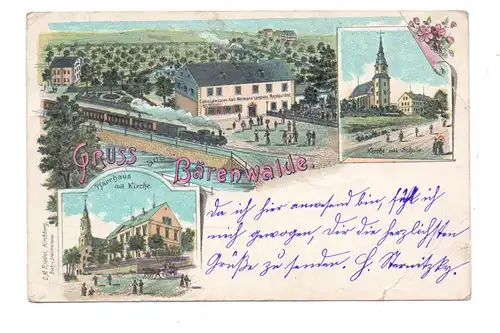 Colonialwaaren Karl Hermann Lenzners Restaurant
GRUSS aus Bärenwalde.
Kirche mit Schule.
Pfarrhaus
mit Kirche.
Da ich hier anwesend bin, fühl ich
mich gewogen, Dir die herzlichsten
Grüße zu senden. H. Sternitzky.